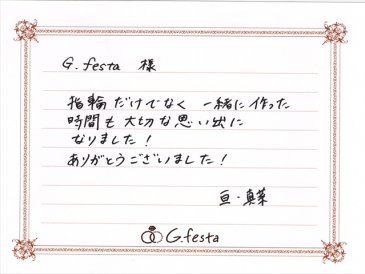 G. festa 様
指輪だけでなく 一緒に作った
時間も大切な思い出に
なりました!
ありがとうございました!
亘・真菜
G.festa